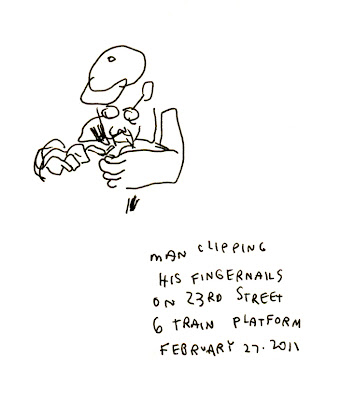 MAN CLIPPING
HIS FINGERNAILS
ON 23RD STREET
6 TRAIN PLATFORM
FEBRUARY 27. 2011